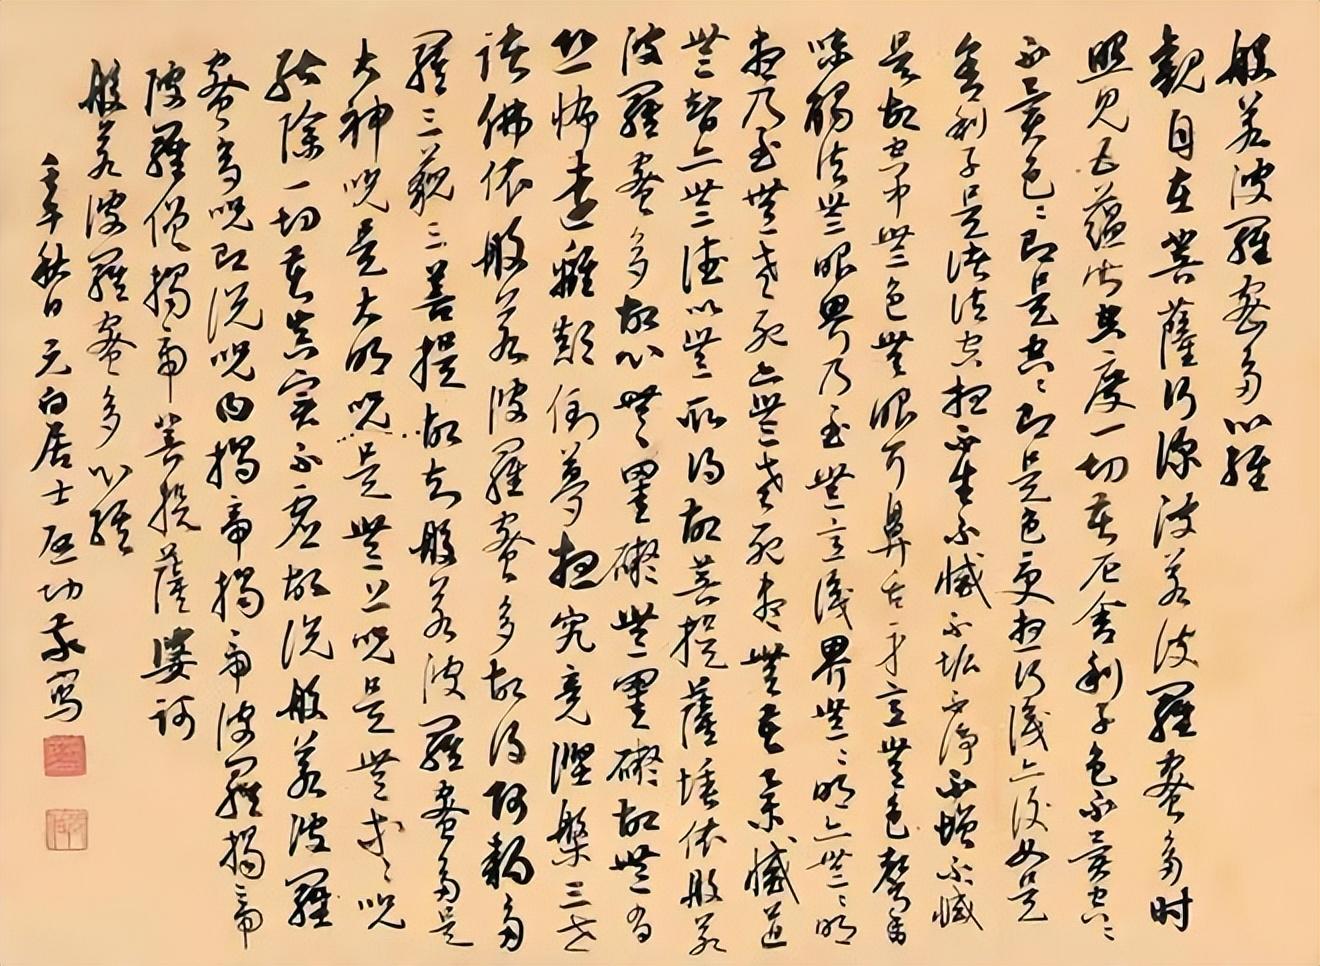 般若波羅蜜多心經
觀自在菩薩行深般若波羅蜜多时
照見五蘊皆空度一切苦厄舍利子色不異空〻
不異色〻即是空〻即是色受想行識亦復如是
舍利子是諸法空相不生不滅不垢不淨不增不減
是故空中無色無眼耳鼻舌身意無色聲香
味觸法無眼界乃至無意識界無〻明亦無〻明
盡乃至無老死亦無老死盡無苦集滅道
無智亦無得以無所得故菩提薩埵依般若
波羅蜜多故心無罣礙無罣礙故無有
恐怖遠離顛倒夢想究竟涅槃三世
諸佛依般若波羅蜜多故得阿耨多
羅三藐三菩提故知般若波羅蜜多是
大神咒是大明咒是無上咒是無等〻咒
能除一切苦真實不虛故說般若波羅
蜜多咒即說咒曰揭帝揭帝波羅揭帝
波羅僧揭帝菩提薩婆訶
般若波羅蜜多心經
秋日元白居士启功敬寫